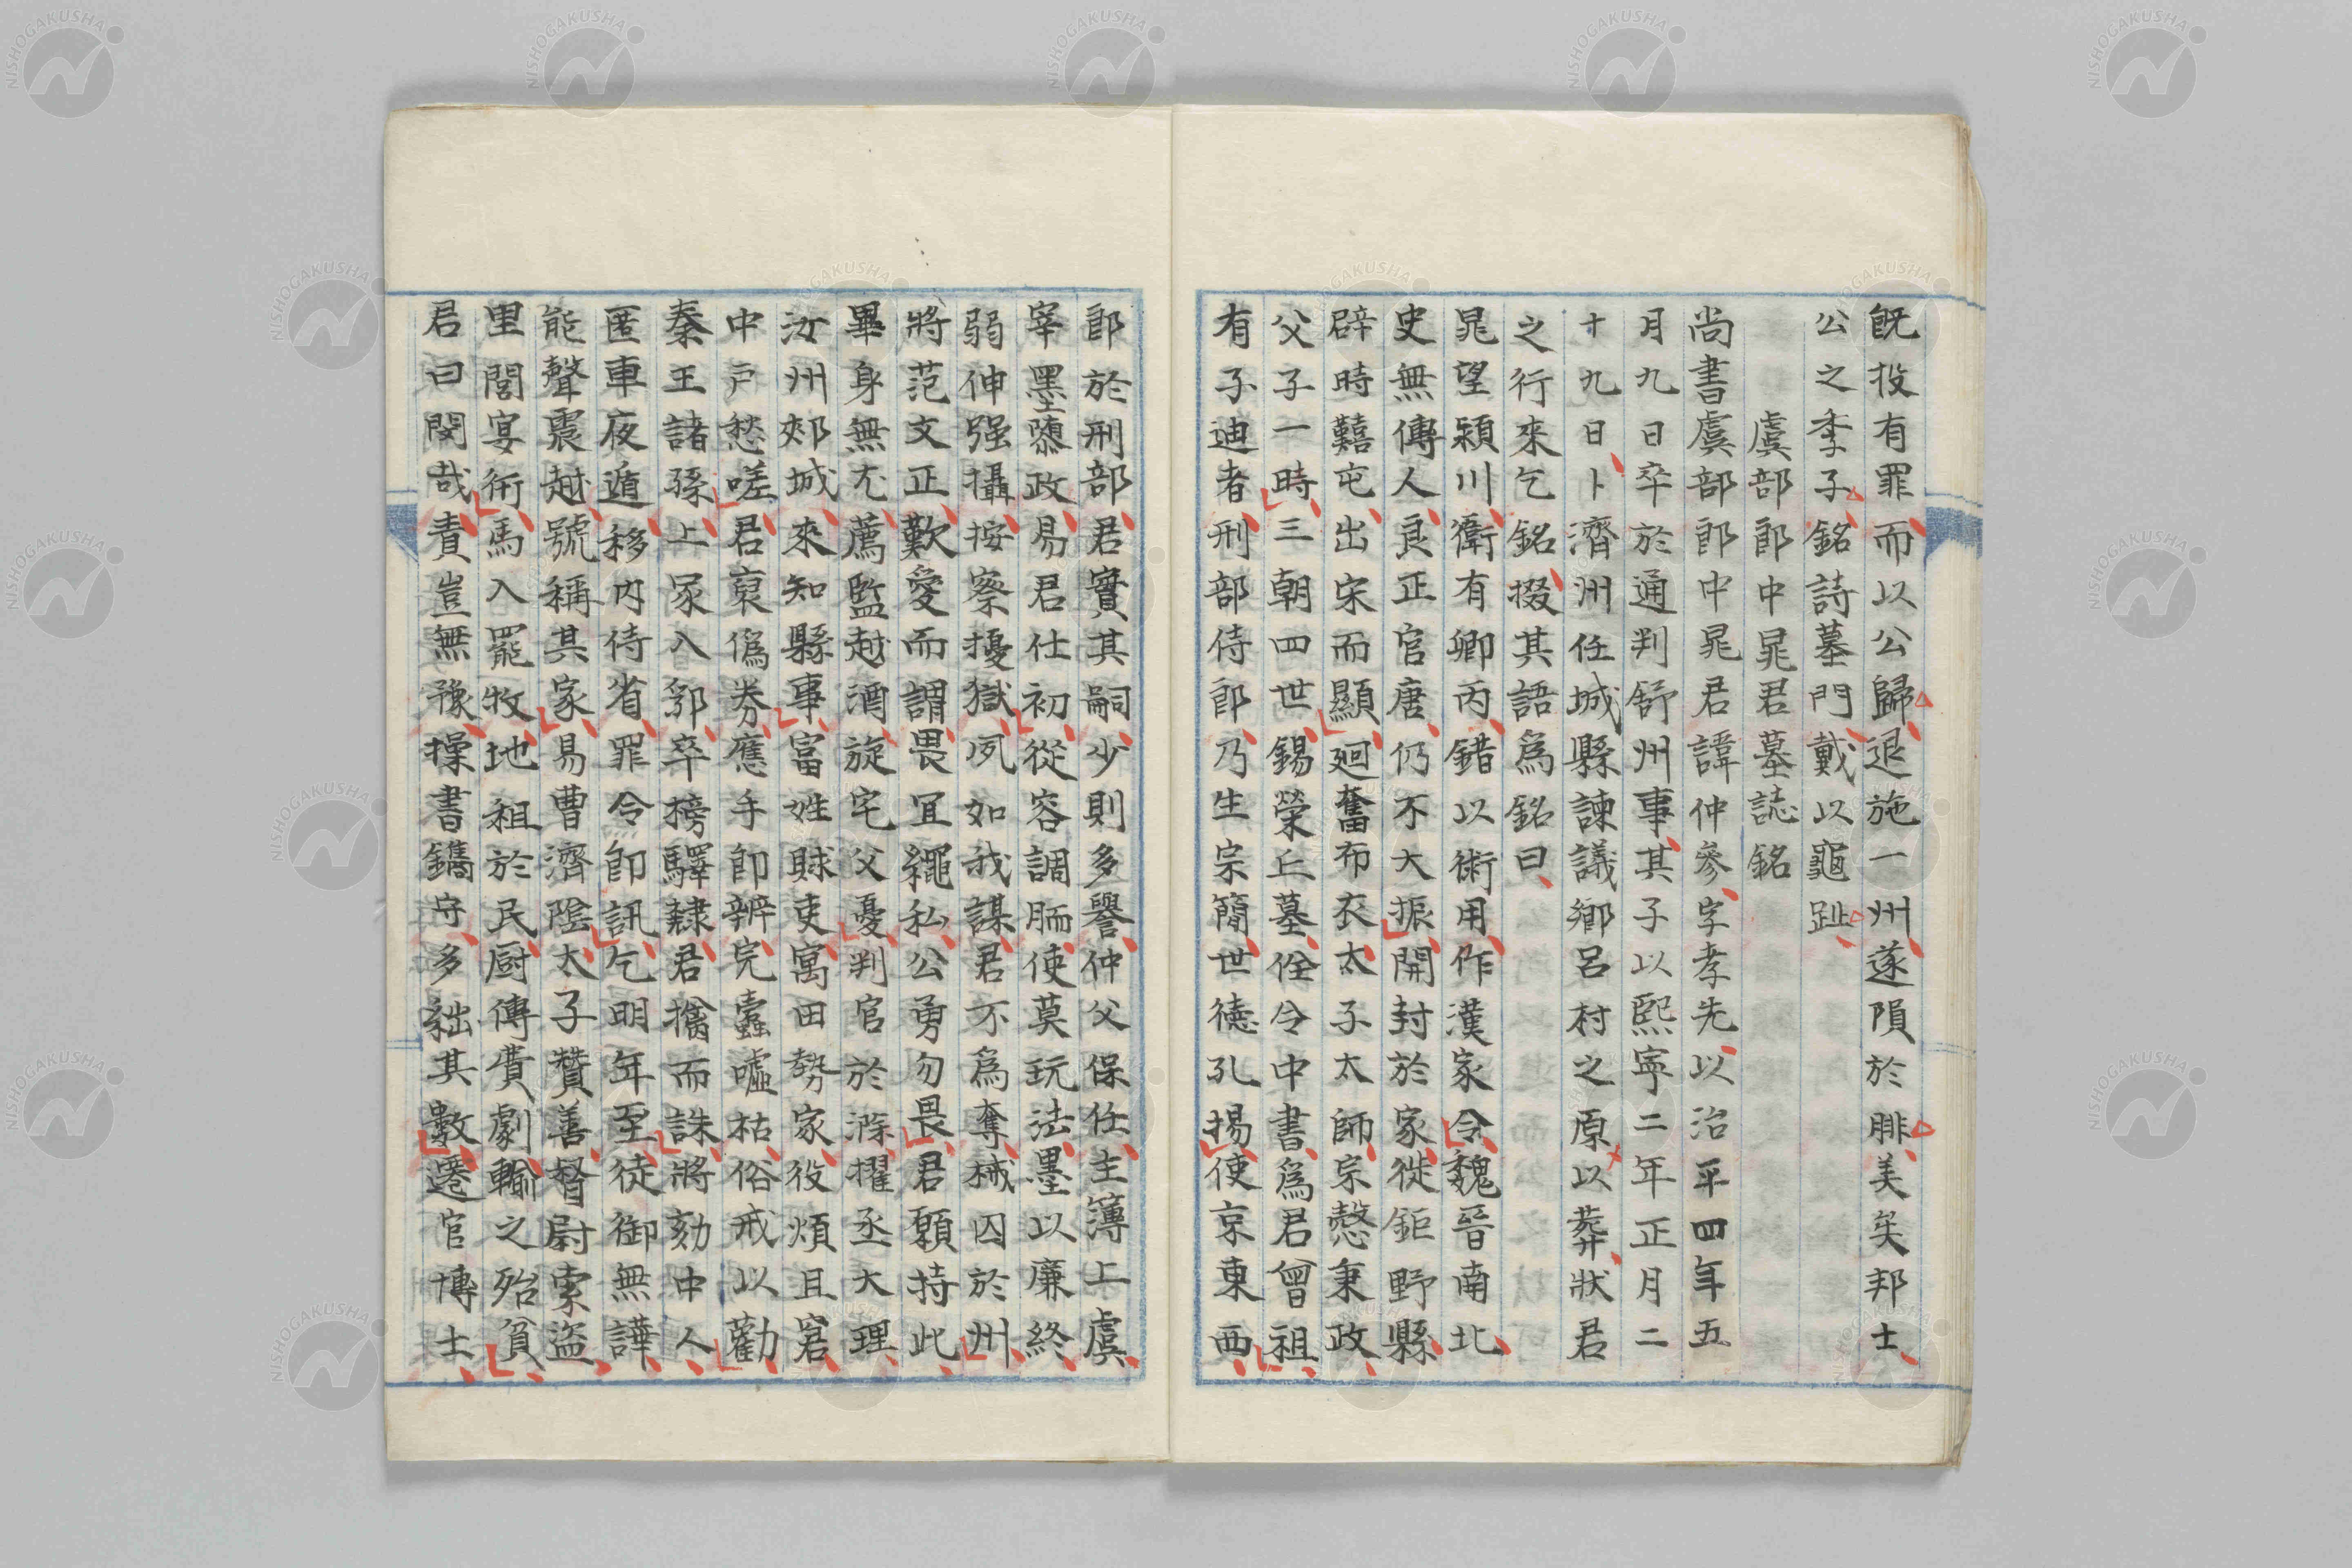 既投有罪而以公歸退施一州遂隕於腓美矣邦士
公之季子銘詩墓門戴以龜趾
虞部郎中晁君墓誌銘
尚書虞部郎中晁君諱仲參字孝先以治平四年五
月九日卒於通判舒州事其子以熙寧二年正月二
十九日卜濟州任城縣諫議鄉呂村之原以葬狀君
之行來乞銘掇其語爲銘曰
晁望潁川衛有卿丙錯以術用作漢家令魏晉南北
史無傳人良正官唐仍不大振開封於家徙鉅野縣
辟時囏屯出宋而顯廻奮布衣太子太師宗慤秉政
父子一時三朝四世錫榮丘墓佺令中書爲君曾祖
有子迪者刑部侍郎乃生宗簡世德孔揚使京東西
郎於刑部君實其嗣少則多譽仲父保任主簿上虞
宰墨隳政易君仕初從容調胹使莫玩法墨以廉終
弱伸强攝按察擾獄夙如我謀君不爲奪械囚於州
將范文正歎愛而謂畏冝繩私公勇勿畏君願持此
畢身無尤薦監越酒旋宅父憂判官於滁擢丞大理
汝州郟城來知縣事富姓賕吏寓田勢家役煩且窘
中戶愁嗟君裒僞券應手卽辨完蠹嘘枯俗戒以勸
秦王諸孫上冢入郛卒搒驛隸君擒而誅將劾中人
匿車夜遁移内侍省罪令卽訊乞明年至徒御無譁
能聲震越號稱其家易曹濟陰太子贊善督尉索盜
里閭宴衎馬入罷牧地租於民厨傳費劇輸之殆貧
君曰閔哉責豈無豫操書鐫守多絀其數遷官博士